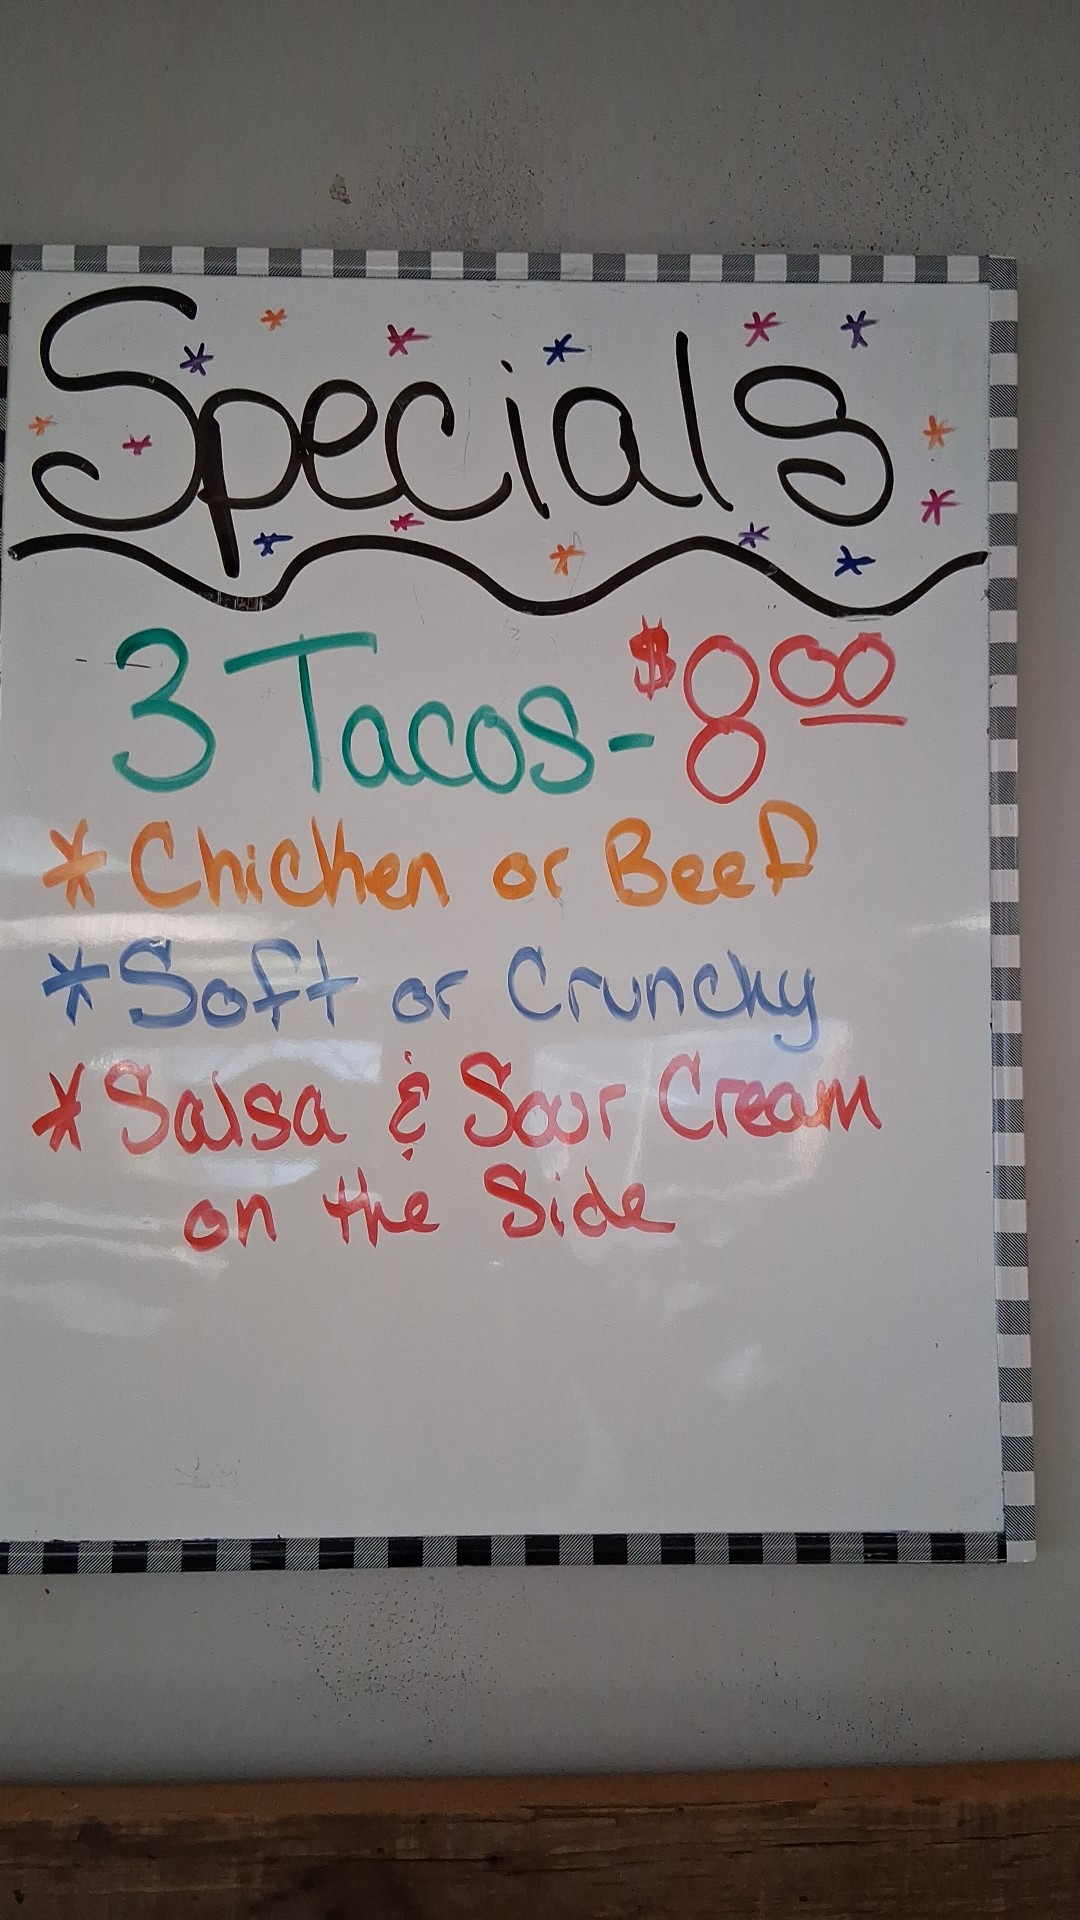 Specials
3 Tacos - $8.00
* Chicken or Beef
* Soft or Crunchy
* Salsa & Sour Cream
on the Side